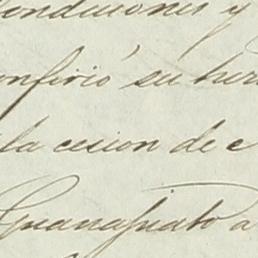 condiciones y
onfirió su her
la cesion de e
Guanajuato a